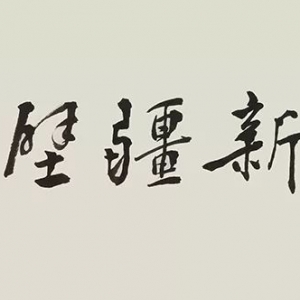 新疆壁